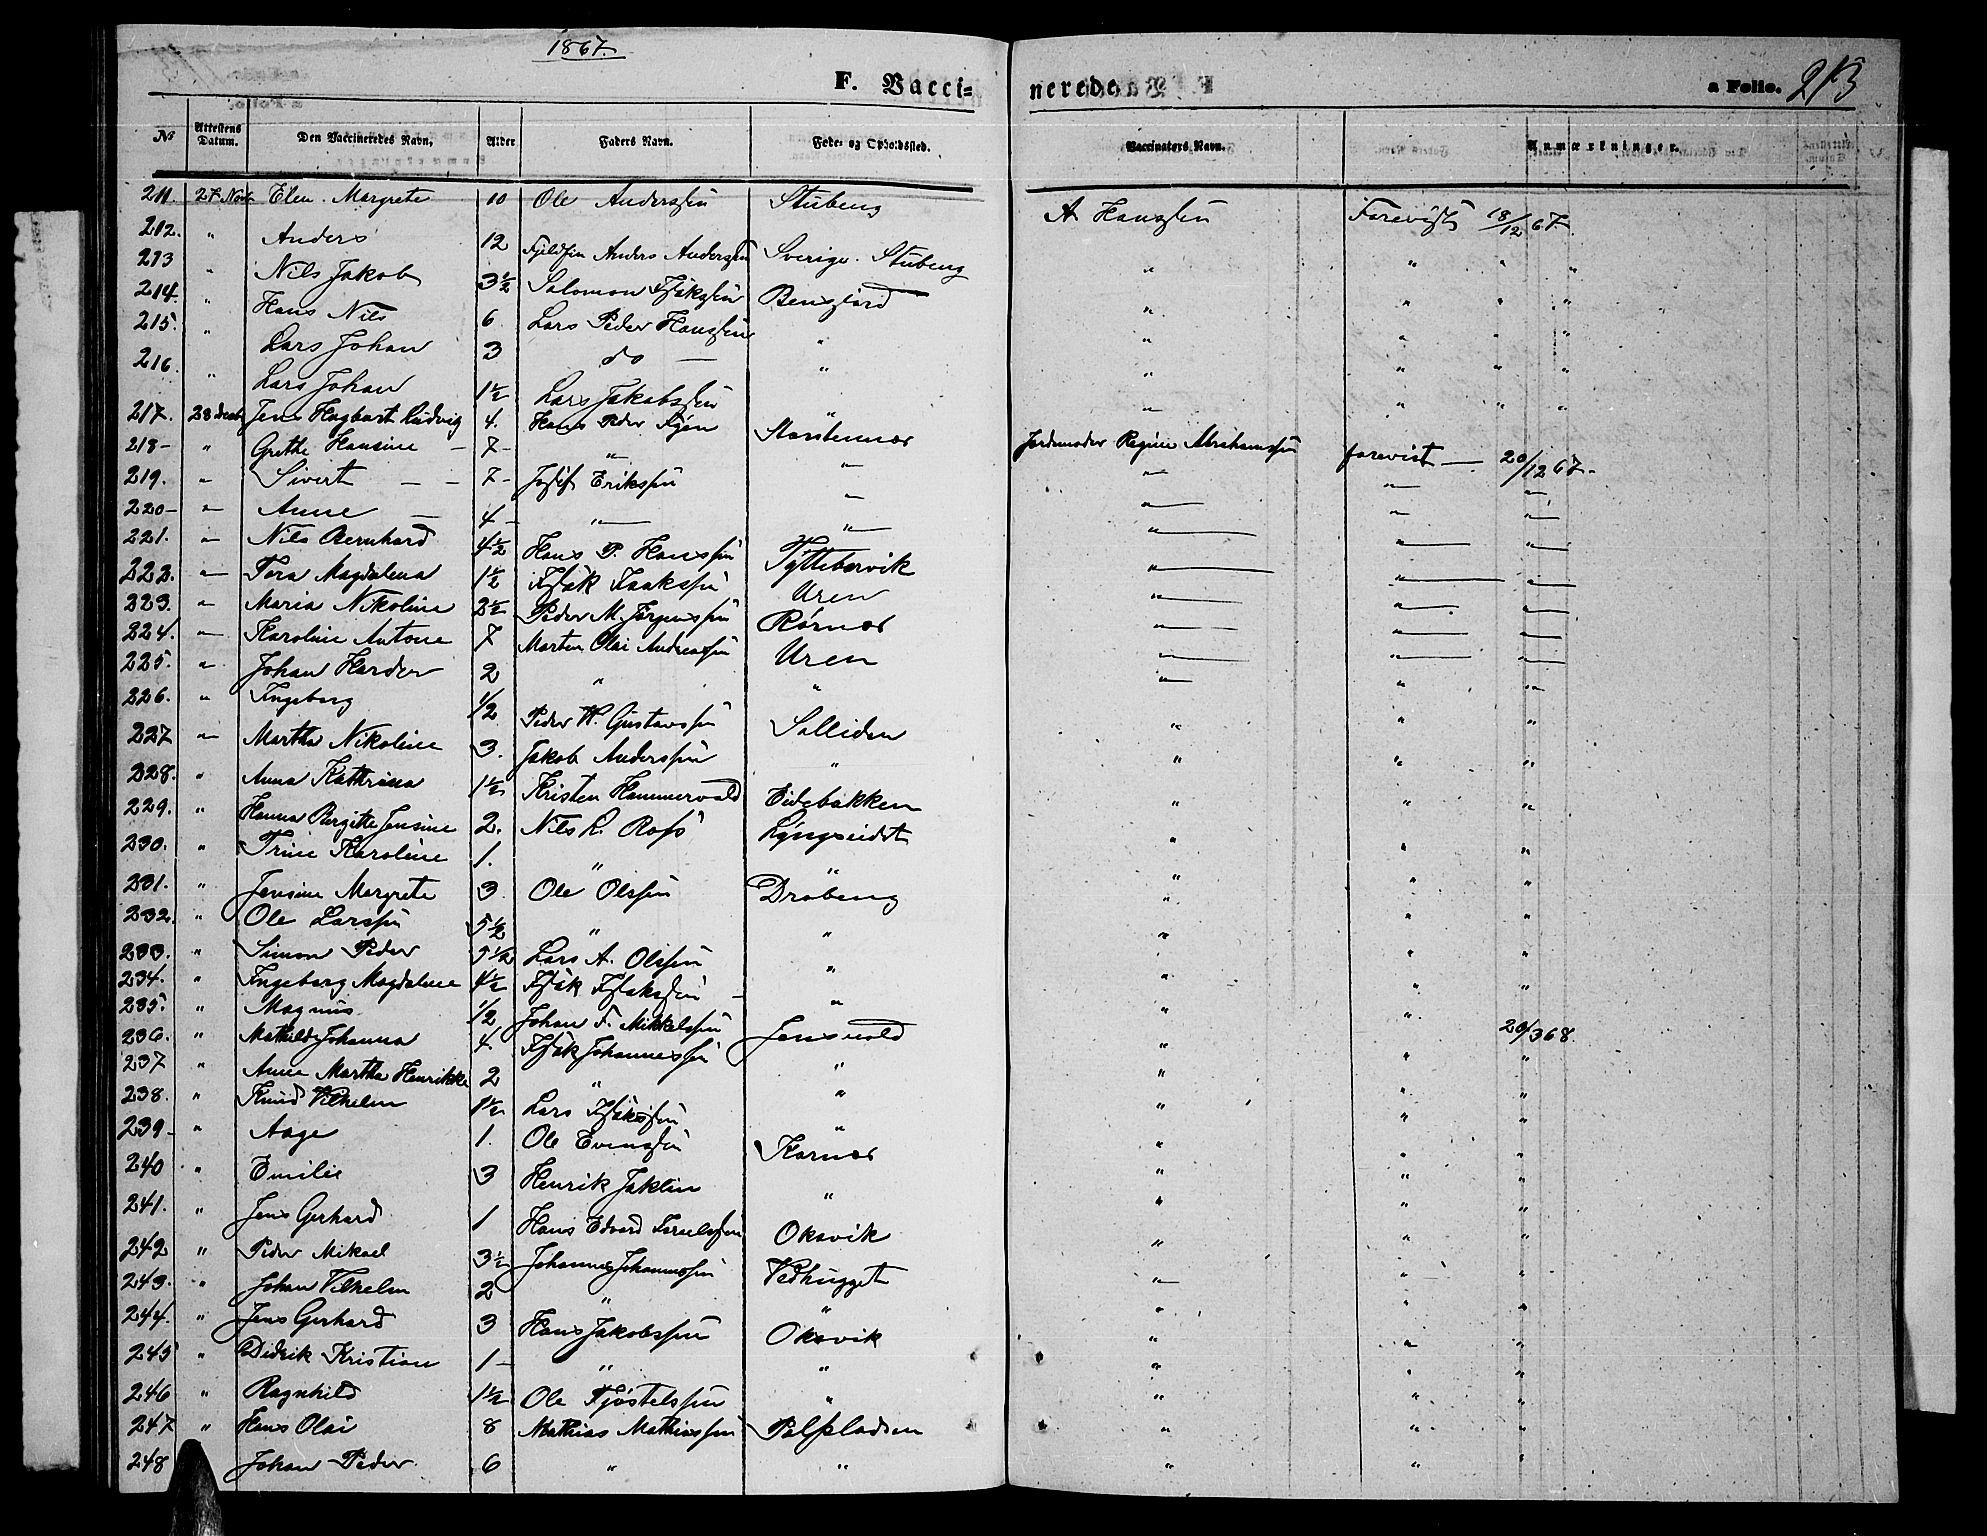 1867.
F. Vacci= nerede a Folio. 213
No Attestens Datum. Den Vaccineredes Navn. Alder Faders Navn. Føde- og Opholdssted. Vaccinators Navn. Anmærkninger.
211. 27 Novb. Elen Margrete 10 Ole Anderssen Stubeng A. Hanssen Forevist 18/12 67.
212. " Anders 12 Anders Anderssen Sverige. Stubeng " " " "
213 " Nils Jakob 3½ Salomon Isaksen " " " "
214. " Hans Nils 6 Lars Peder Hanssen " " " " "
215. " Lars Johan 3 do — " " " " "
216. " Lars Johan 1½ Lars Jakobssen " " " " "
217. 28 Decb Jens Hagbart Ludvig 4. Hans Peder Jordemoder Regine Abrahamssen forevist — 20/12 67.
218 — " Grethe Hansine — 7 — " — " — " — " — " —
219. " Sivert — — 7 — Josef Erikssen " — " — " — " —
220 — " Anne — 4 — " — " — " — " — " —
221. " Nils Bernhard 4½ Hans P. Hanssen Tyttebærvik " — " — " —
222. " Tora Magdalena 1½ Isak Isakssen Uren " — " — " —
223. " Maria Nikoline 2½ Peder M. Jørgenssen Rørnes " — " — " —
224. " Karoline Antone 7 Morten Olai Andreassen Uren " — " — " —
225. " Johan Harder 2 " " " — " "
226. " Ingeborg 1/2 Peder W. Gustavssen Solliden " " "
227 " Martha Nikoline 3. Jakob Anderssen " " " "
228. " Anna Kathrina 1½ Kristen Hammervold Eidebakken " " "
229. " Hanna Birgitte Jensine 2. Nils L. Ross Lyngseidet " " "
230. " Trine Karoline 1. " " " " "
231. " Jensine Margrete 3 Ole Olssen Drabeng " " "
232. " Ole Larssen 5½ " " " " "
233. " Simon Peder 5½ Lars A. Olssen " " " "
234. " Ingeborg Magdalene 4½ Isak Isakssen — " " " "
235. " Magnus 1/2 Johan F. Mikkelssen Jensvold " " 20/3 68.
236. " Mathilde Johanna 4. Isak Johannessen " " " "
237 " Anne Martha Henrikke 2 " " " " "
238. " Knud Vilhelm 1½ Lars Isakssen " " " "
239 — " Aage 1. Ole Evenssen Karnes " " "
240 " Emilie 3 Henrik Jaklin " " " "
241. " Jens Gerhard 1 Hans Edvard Israelssen Oksvik " " "
242 " Peder Mikael 3½ Johannes Johannessen Vedhugget " " "
243. " Johan Vilhelm 2 " " " " "
244. " Jens Gerhard 3 Hans Jakobssen Oksvik " " "
245 " Didrik Kristian 1 — " " " " "
246 " Ragnhild 1½ Ole Kjøstelssen " " " "
247 " Hans Olai 8 Mathias Mathiassen " " "
248 " Johan Peder 6 " " " " "